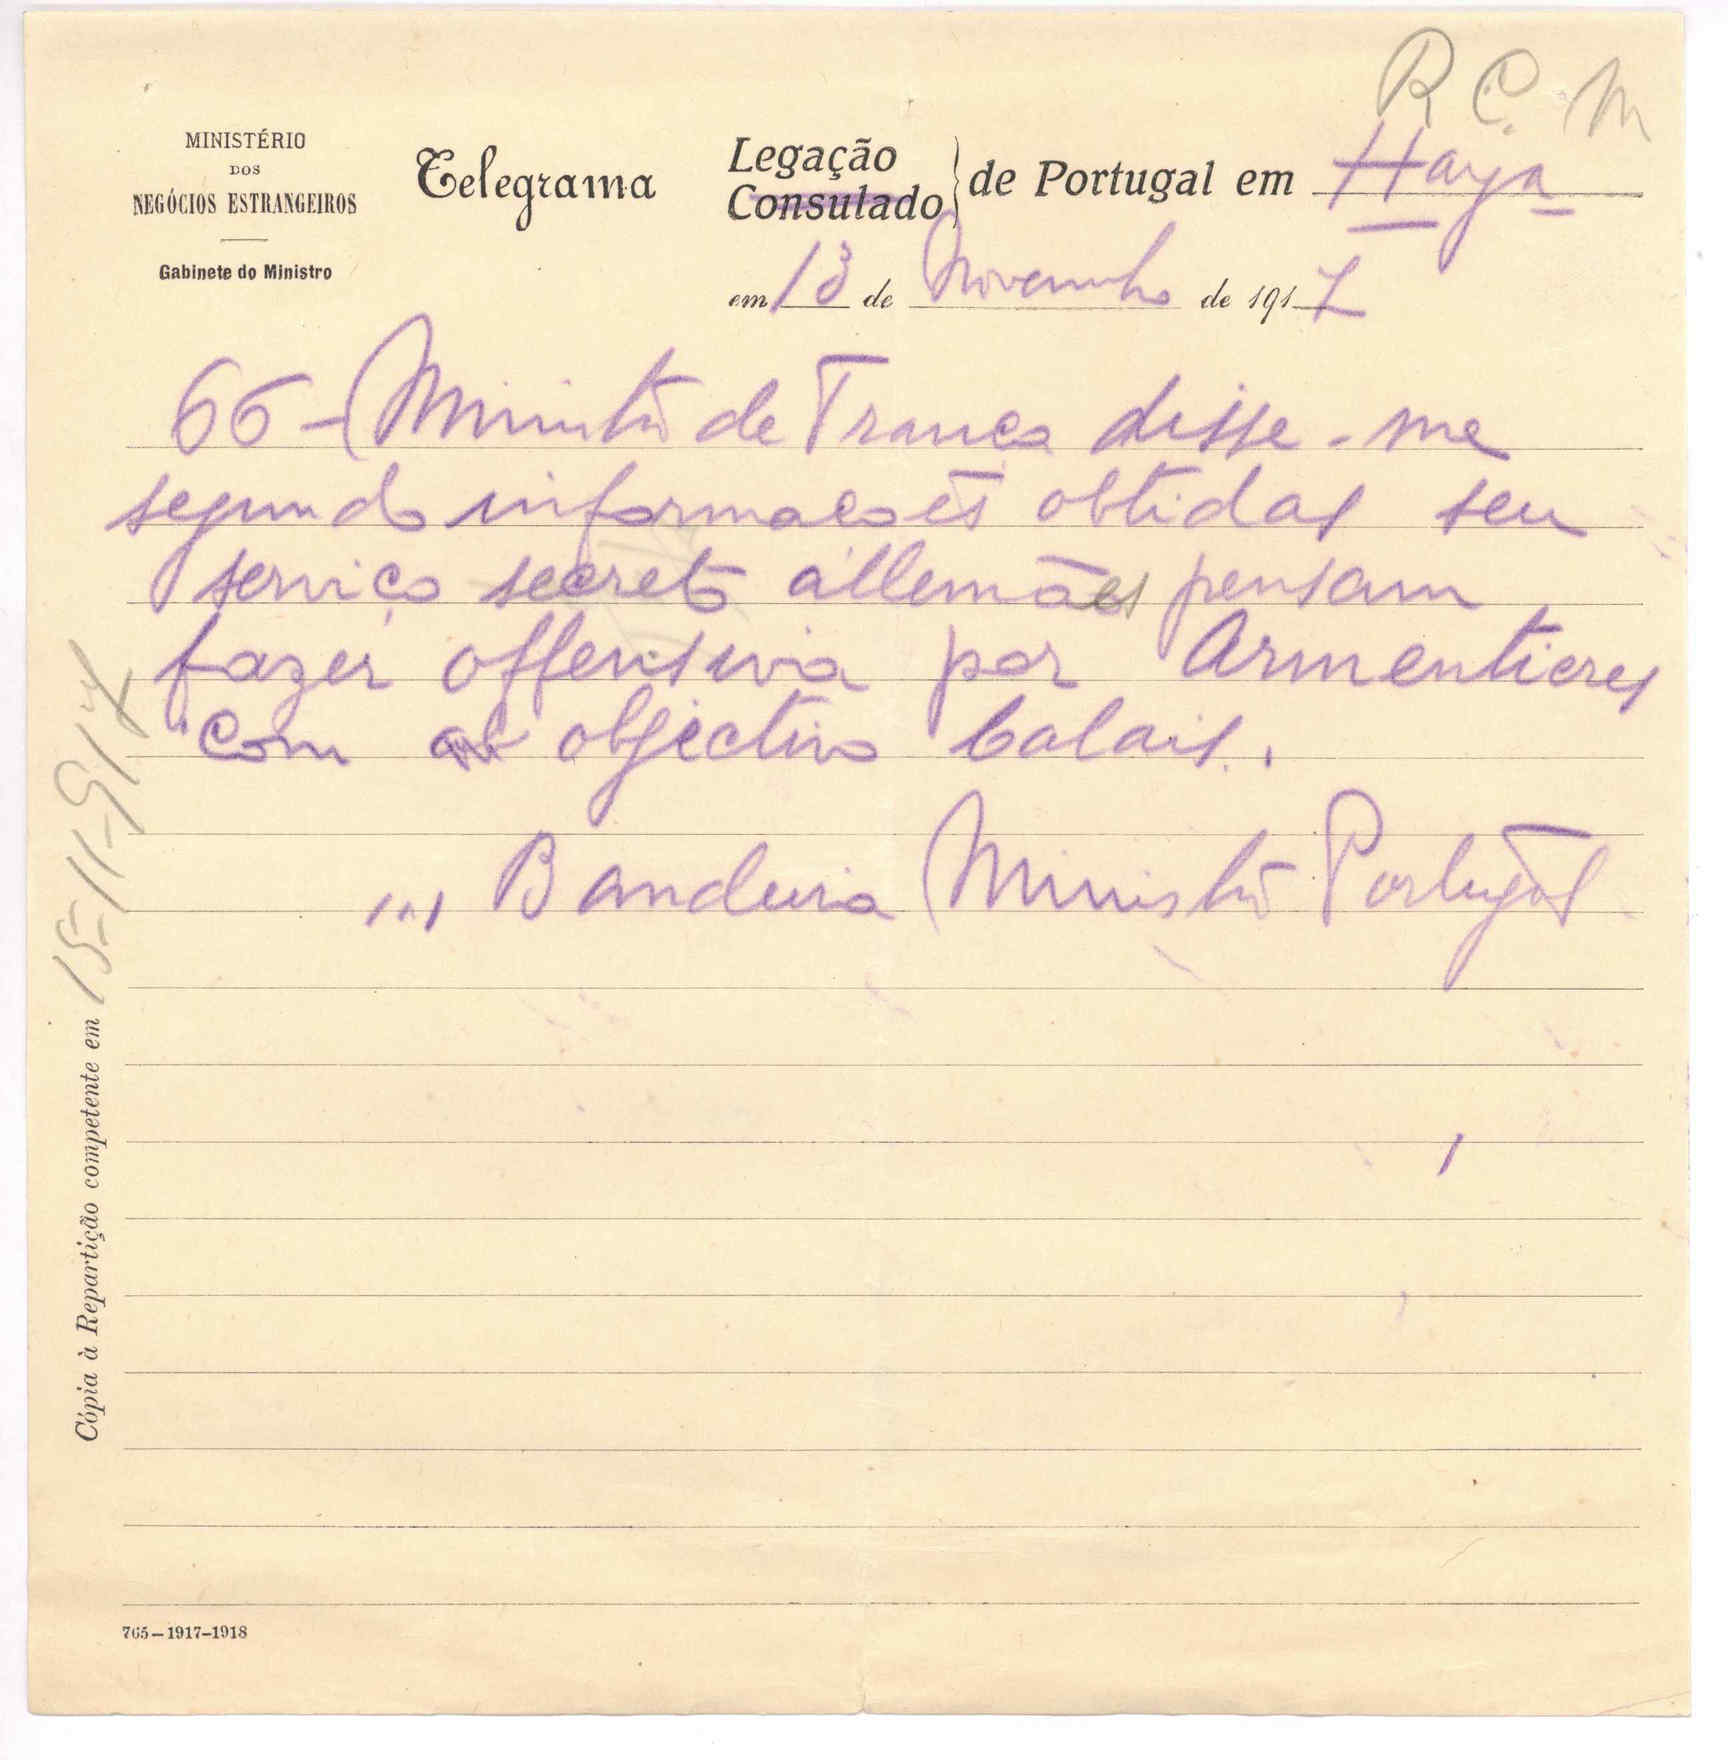 R C. M
MINISTÉRIO
DOS
NEGÓCIOS ESTRANGEIROS
Gabinete do Ministro
Telegrama
Legação
Consulado
de Portugal em Haya
em 13 de Novembro de 1917
66 - Ministro de França disse-me
segundo informações obtidas seu
serviço secreto allemães pensam
fazer offensiva por Armentieres
com objectivo Calais.
... Bandeira Ministro Portugal
Cópia à Repartição competente em 15-11-917
765-1917-1918